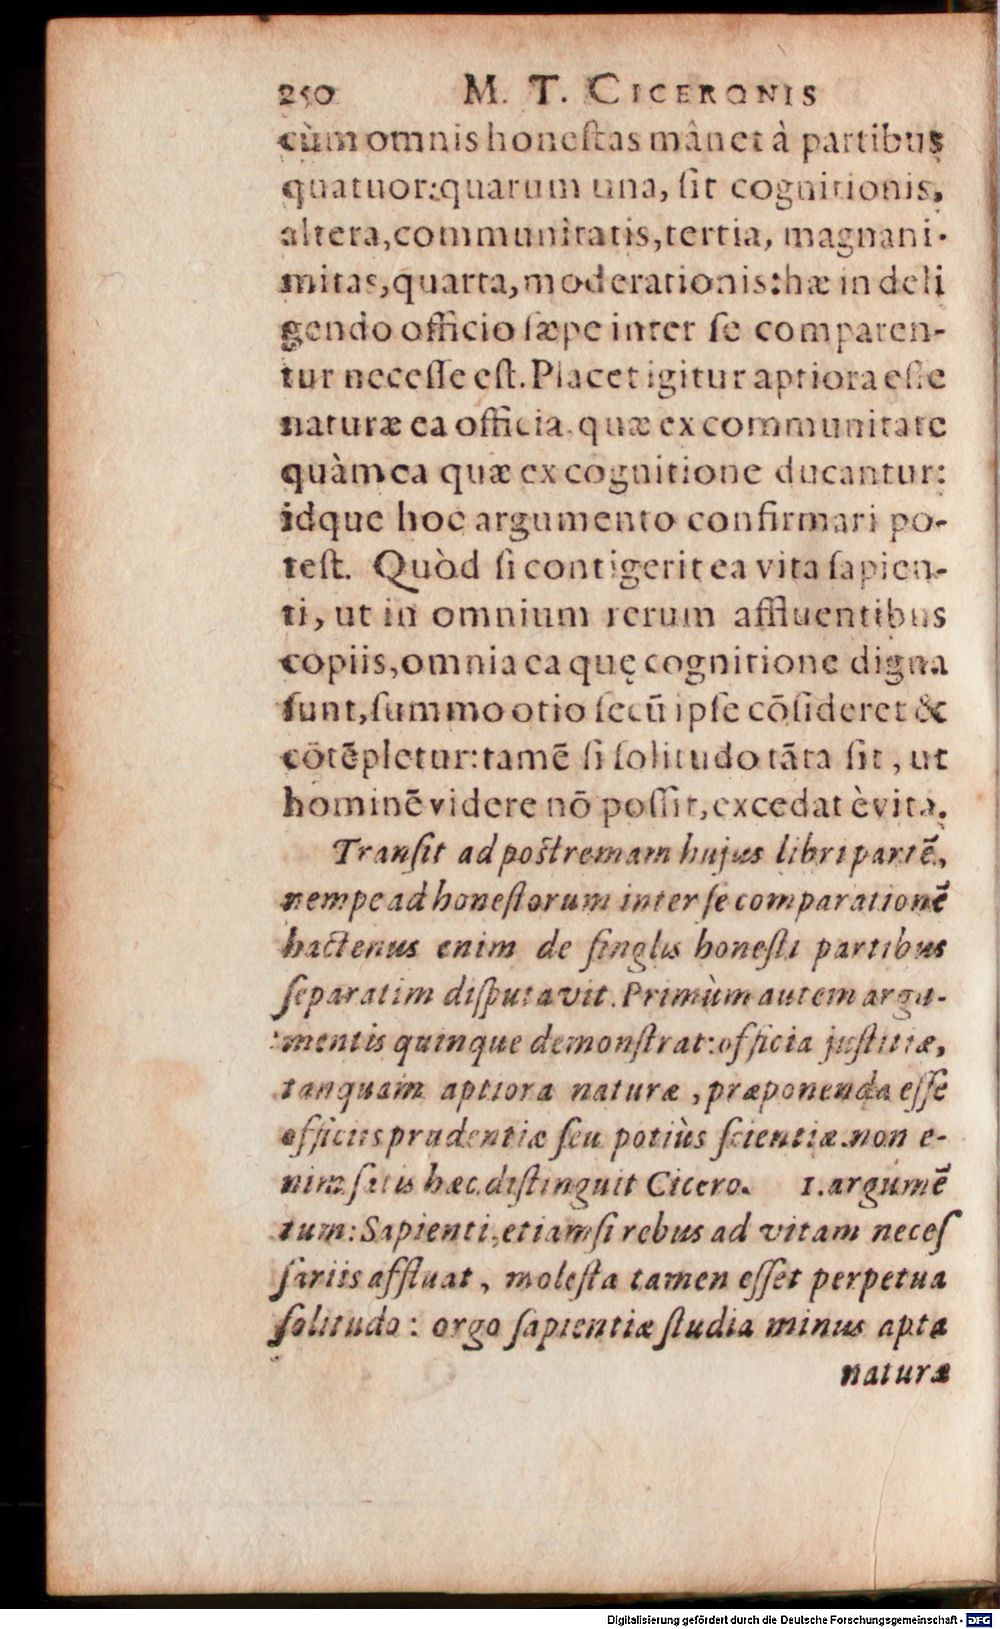 250 M. T. CICERONIS
cùm omnis honestas mânet à partibus
quatuor: quarum una, sit cognitionis,
altera, communitatis, tertia, magnani-
mitas, quarta, moderationis: hæ in deli
gendo officio sæpe inter se comparen-
tur necesse est. Placet igitur aptiora esse
naturæ ea officia quæ ex communitate
quàm ea quæ ex cognitione ducantur:
idque hoc argumento confirmari po-
test. Quòd si contigerit ea vita sapien-
ti, ut in omnium rerum affluentibus
copiis, omnia ea quę cognitione digna
sunt, summo otio secū ipse cōsideret &
cōtēpletur: tamē si solitudo tāta sit, ut
hominē videre nō possit, excedat è vita.
Transit ad postremam hujus libri partē,
nempe ad honestorum inter se comparationē
hactenus enim de singlis honesti partibus
separatim disputavit. Primùm autem argu-
mentis quinque demonstrat: officia justitiæ,
tanquam aptiora naturæ, præponenda esse
officiis prudentiæ seu potiùs scientiæ. non e-
nim satis hæc distinguit Cicero. 1. argumē
tum: Sapienti, etiamsi rebus ad vitam neces
sariis affluat, molesta tamen esset perpetua
solitudo: orgo sapientiæ studia minus apta
naturæ
Digitalisierung gefördert durch die Deutsche Forschungsgemeinschaft - DFG